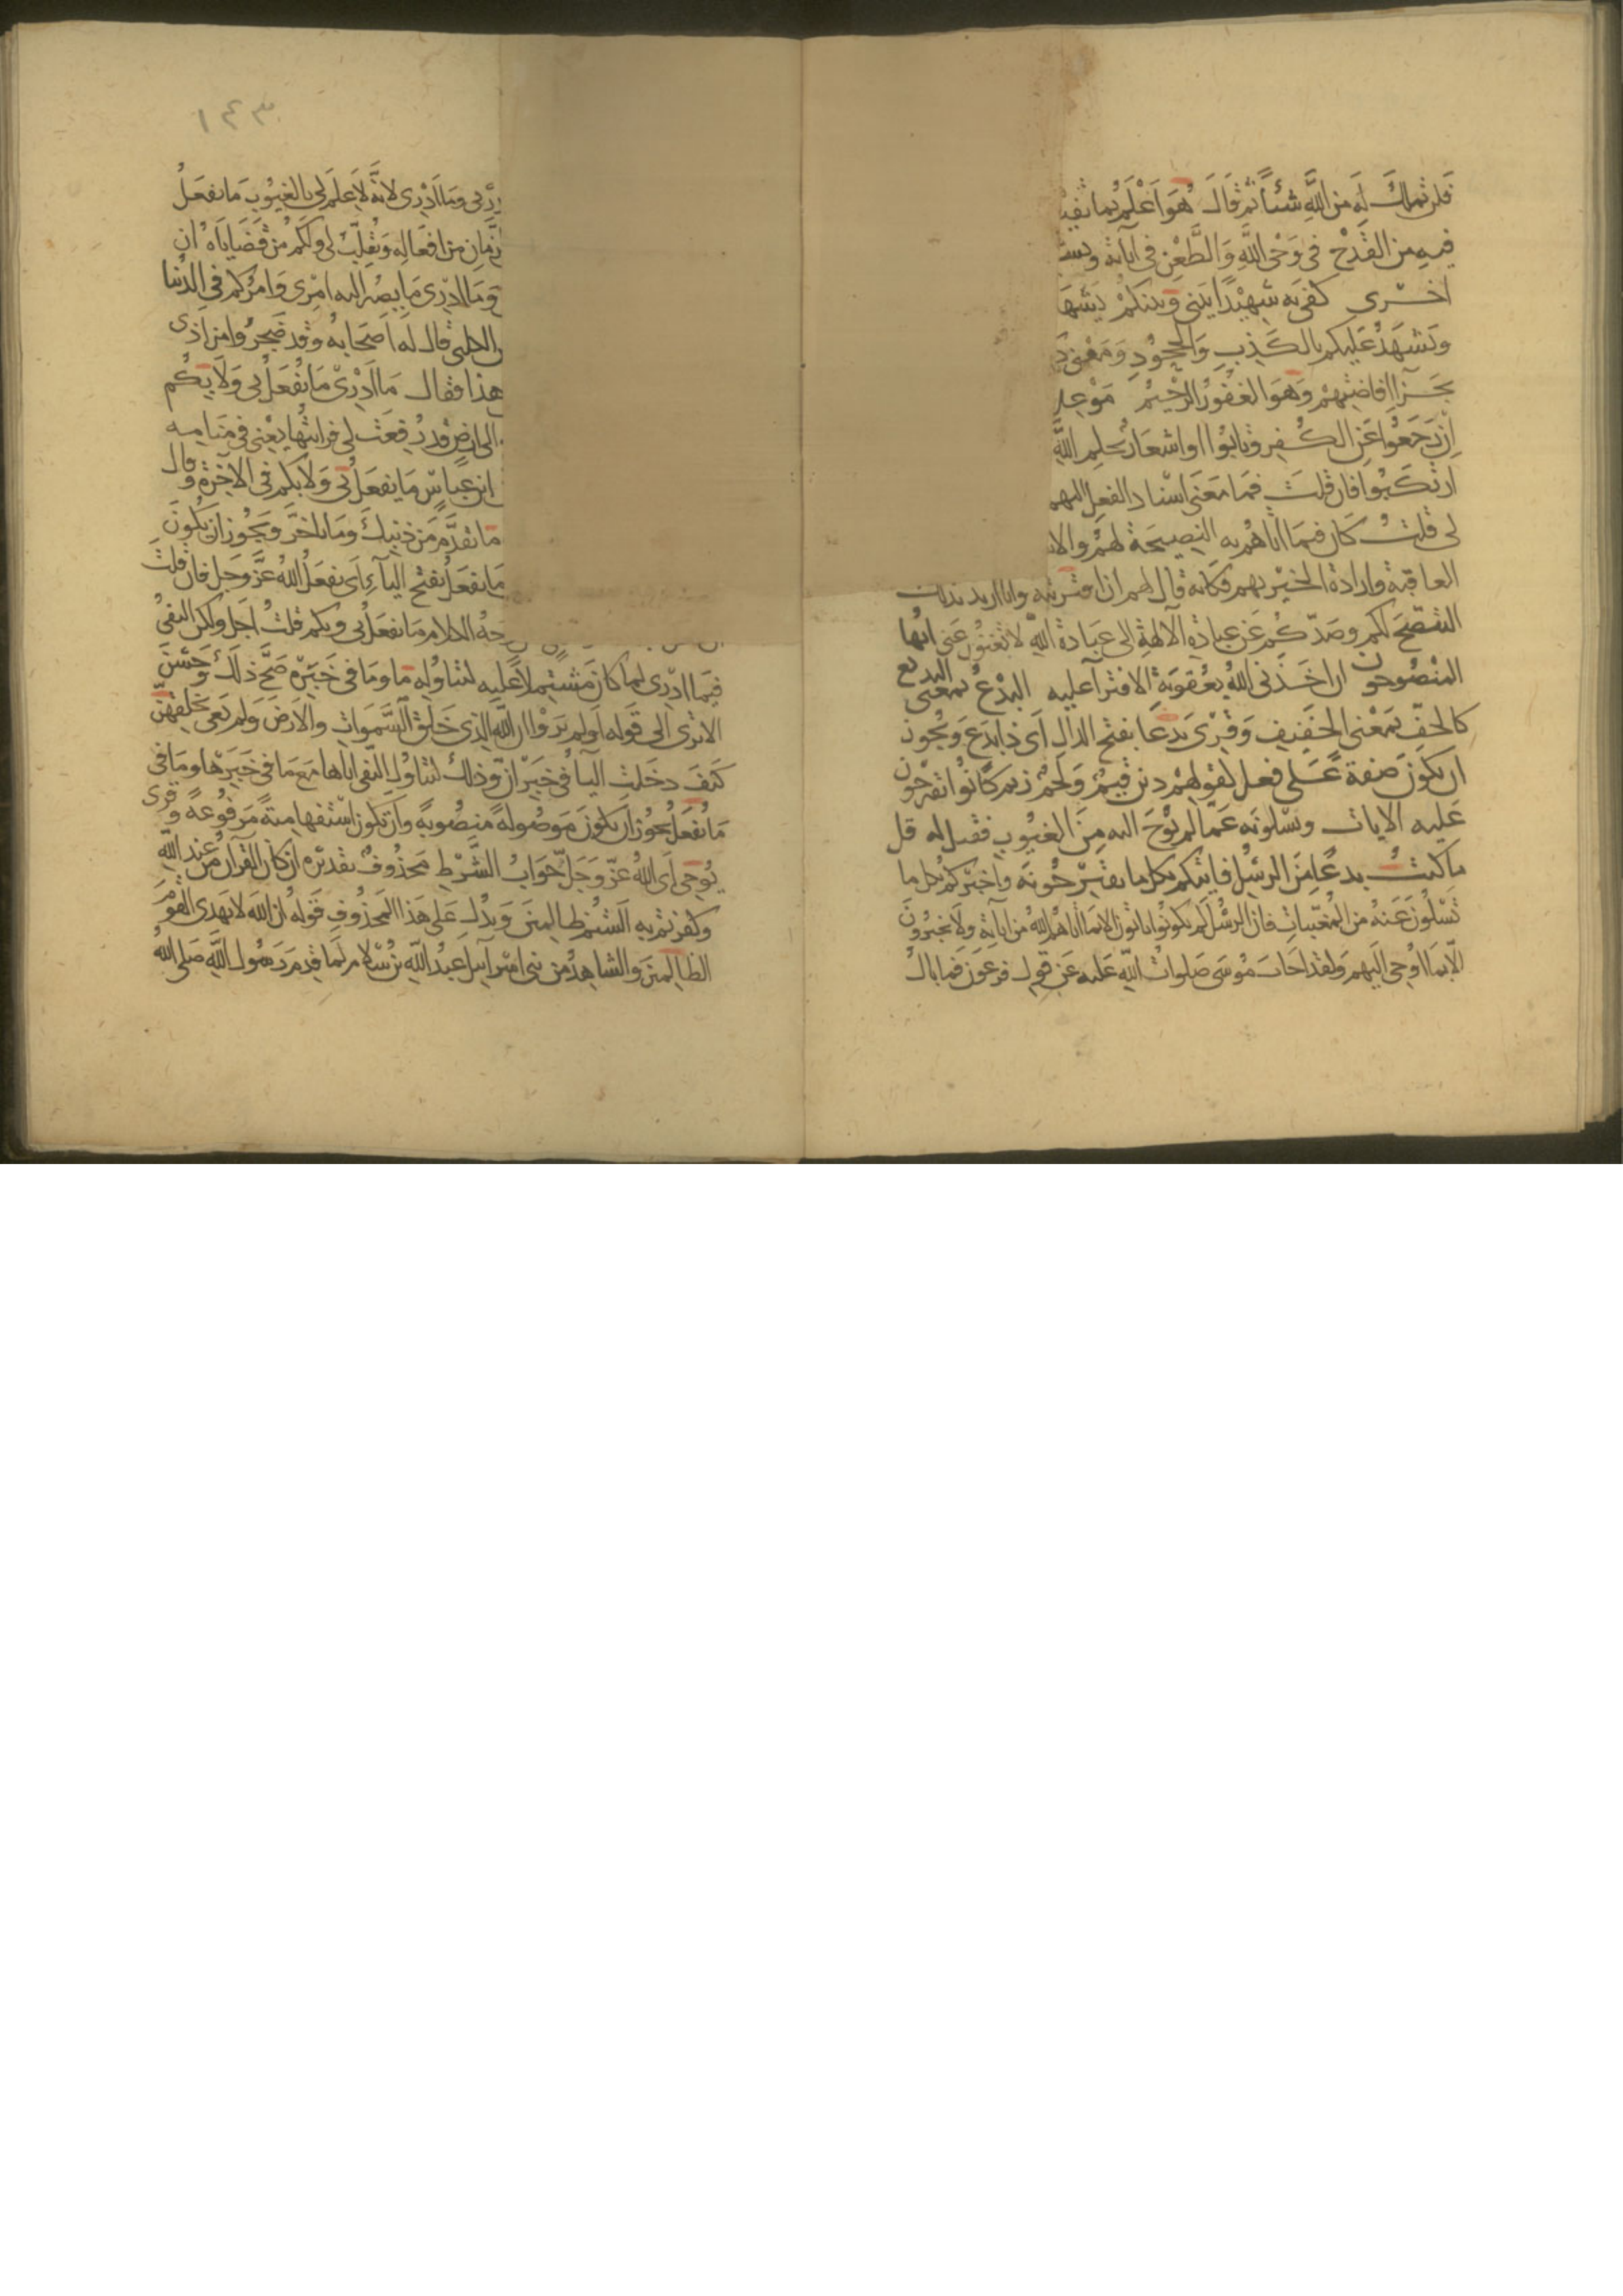 فلن تملك له من الله شيئاً ثم قال هو أعلم بما تفيـ
فيه من القدح في وحي الله والطعن في آياته
أخرى كفى به شهيداً بيني وبينكم يشهد
ويشهد عليكم بالكذب والجحود ومعنى
جزاء إفاضتهم وهو الغفور الرحيم موعد
إن رجعوا عن الكفر وتابوا وإشعار بحلم الله
ارتكبوا فإن قلت فما معنى إسناد الفعل إليهم
لي قلت كان فيما أتاهم به النصيحة لهم والا
العاقبة وإرادة الخير بهم فكأنه قال لهم إن افتريته وأنا أريد بذلك
التنصح لكم وصدكم عن عبادة الآلهة إلى عبادة الله لا تغنون عني أيها
المنصوحون إن أخذني الله بعقوبة الافتراء عليه البدع بمعنى البديع
كالخف بمعنى الخفيف وقرئ بدعا بفتح الدال أي ذا بدع ويجوز
أن يكون صفة على فعل كقولهم دين قيم ولحم زيم كانوا يقترحون
عليه الآيات ويسلونه عما لم يوح إليه من الغيوب فقيل له قل
ما كنت بدعا من الرسل فآتيكم بكل ما تقترحونه وأخبركم بكل ما
تسلون عنه من المغيبات فإن الرسل لم يكونوا يأتون إلا بما آتاهم الله من آياته ولا يخبرون
إلا بما أوحي إليهم ولقد أجاب موسى صلوات الله عليه عن قول فرعون فما بال
١٤٣
وما أدري لأنه لا علم لي بالغيوب ما يفعل
الزمان من أفعاله ويقلب لي ولكم من قضاياه ان
وما أدري ما يصير إليه أمري وأمركم في الدنيا
والكلبي قال له أصحابه وقد ضجروا من أذى
هذا فقال ما أدري ما يفعل بي ولا بكم
إلى أرض قد رفعت لي فرأيتها يعني في منامه
ابن عباس ما يفعل بي ولا بكم في الآخرة وقال
ما تقدم من ذنبك وما تأخر ويجوز أن يكون
ما يفعل بفتح الياء أي يفعل الله عز وجل فإن قلت
وجه الكلام ما يفعل بي وبكم قلت أجل ولكن النفي
فيما أدري لما كان مشتملا عليه لتناوله ما وما في خبره صح ذلك وحسن
ألا ترى إلى قوله أولم يروا أن الله الذي خلق السموات والأرض ولم يعي بخلقهن
كيف دخلت الباء في خبر أن وذلك لتناول النفي إياها مع ما في خبرها وما في
ما يفعل يجوز أن يكون موصولة منصوبة وأن تكون استفهامية مرفوعة وقرئ
يوحي أي الله عز وجل جواب الشرط محذوف تقديره إن كان القرآن من عند الله
وكفرتم به ألستم ظالمين ويدل على هذا المحذوف قوله إن الله لا يهدي القوم
الظالمين والشاهد من بني إسرائيل عبد الله بن سلام لما قدم رسول الله صلى الله